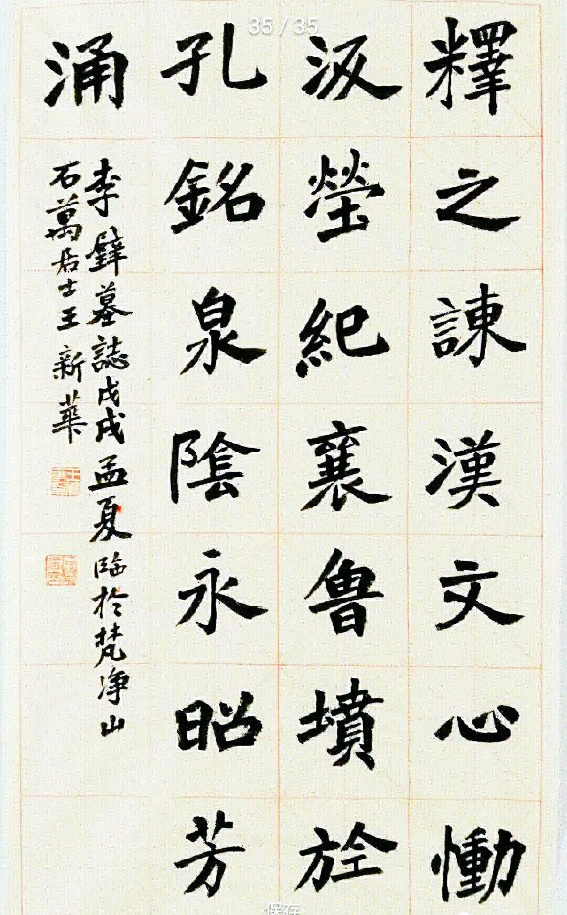 35 / 35
釋之諫漢文心慟
汲塋紀襄魯墳旌
孔銘泉陰永昭芳
涌
李璧墓誌戊戌孟夏臨於梵净山
石萬居士王新華
保存